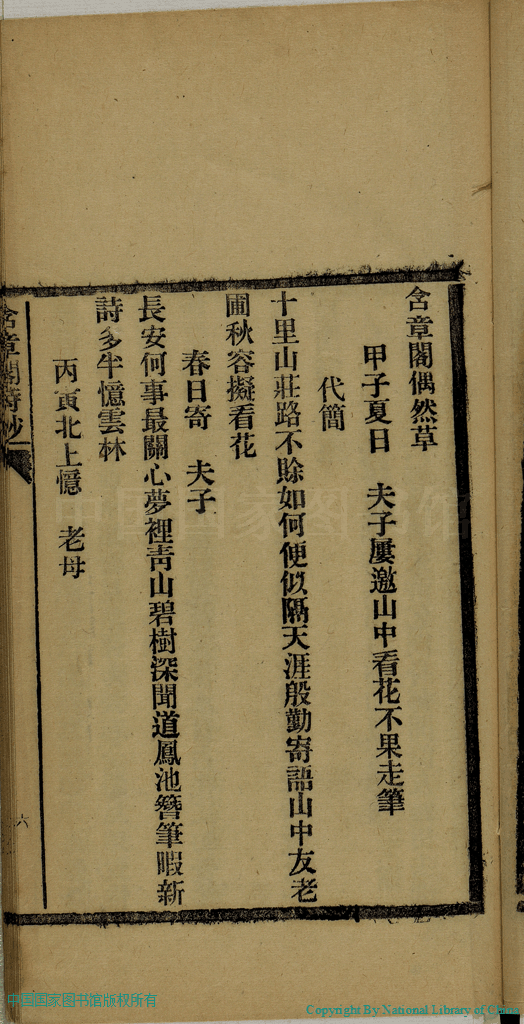 含章閣偶然草
甲子夏日　夫子屢邀山中看花不果走筆
代簡
十里山莊路不賒如何便似隔天涯般勤寄語山中友老
圃秋容擬看花
春日寄　夫子
長安何事最關心夢裡青山碧樹深聞道鳳池簪筆暇新
詩多半憶雲林
丙寅北上憶　老母
含章閣詩鈔
六
中国国家图书馆
中国国家图书馆版权所有
Copyright By National Library of China